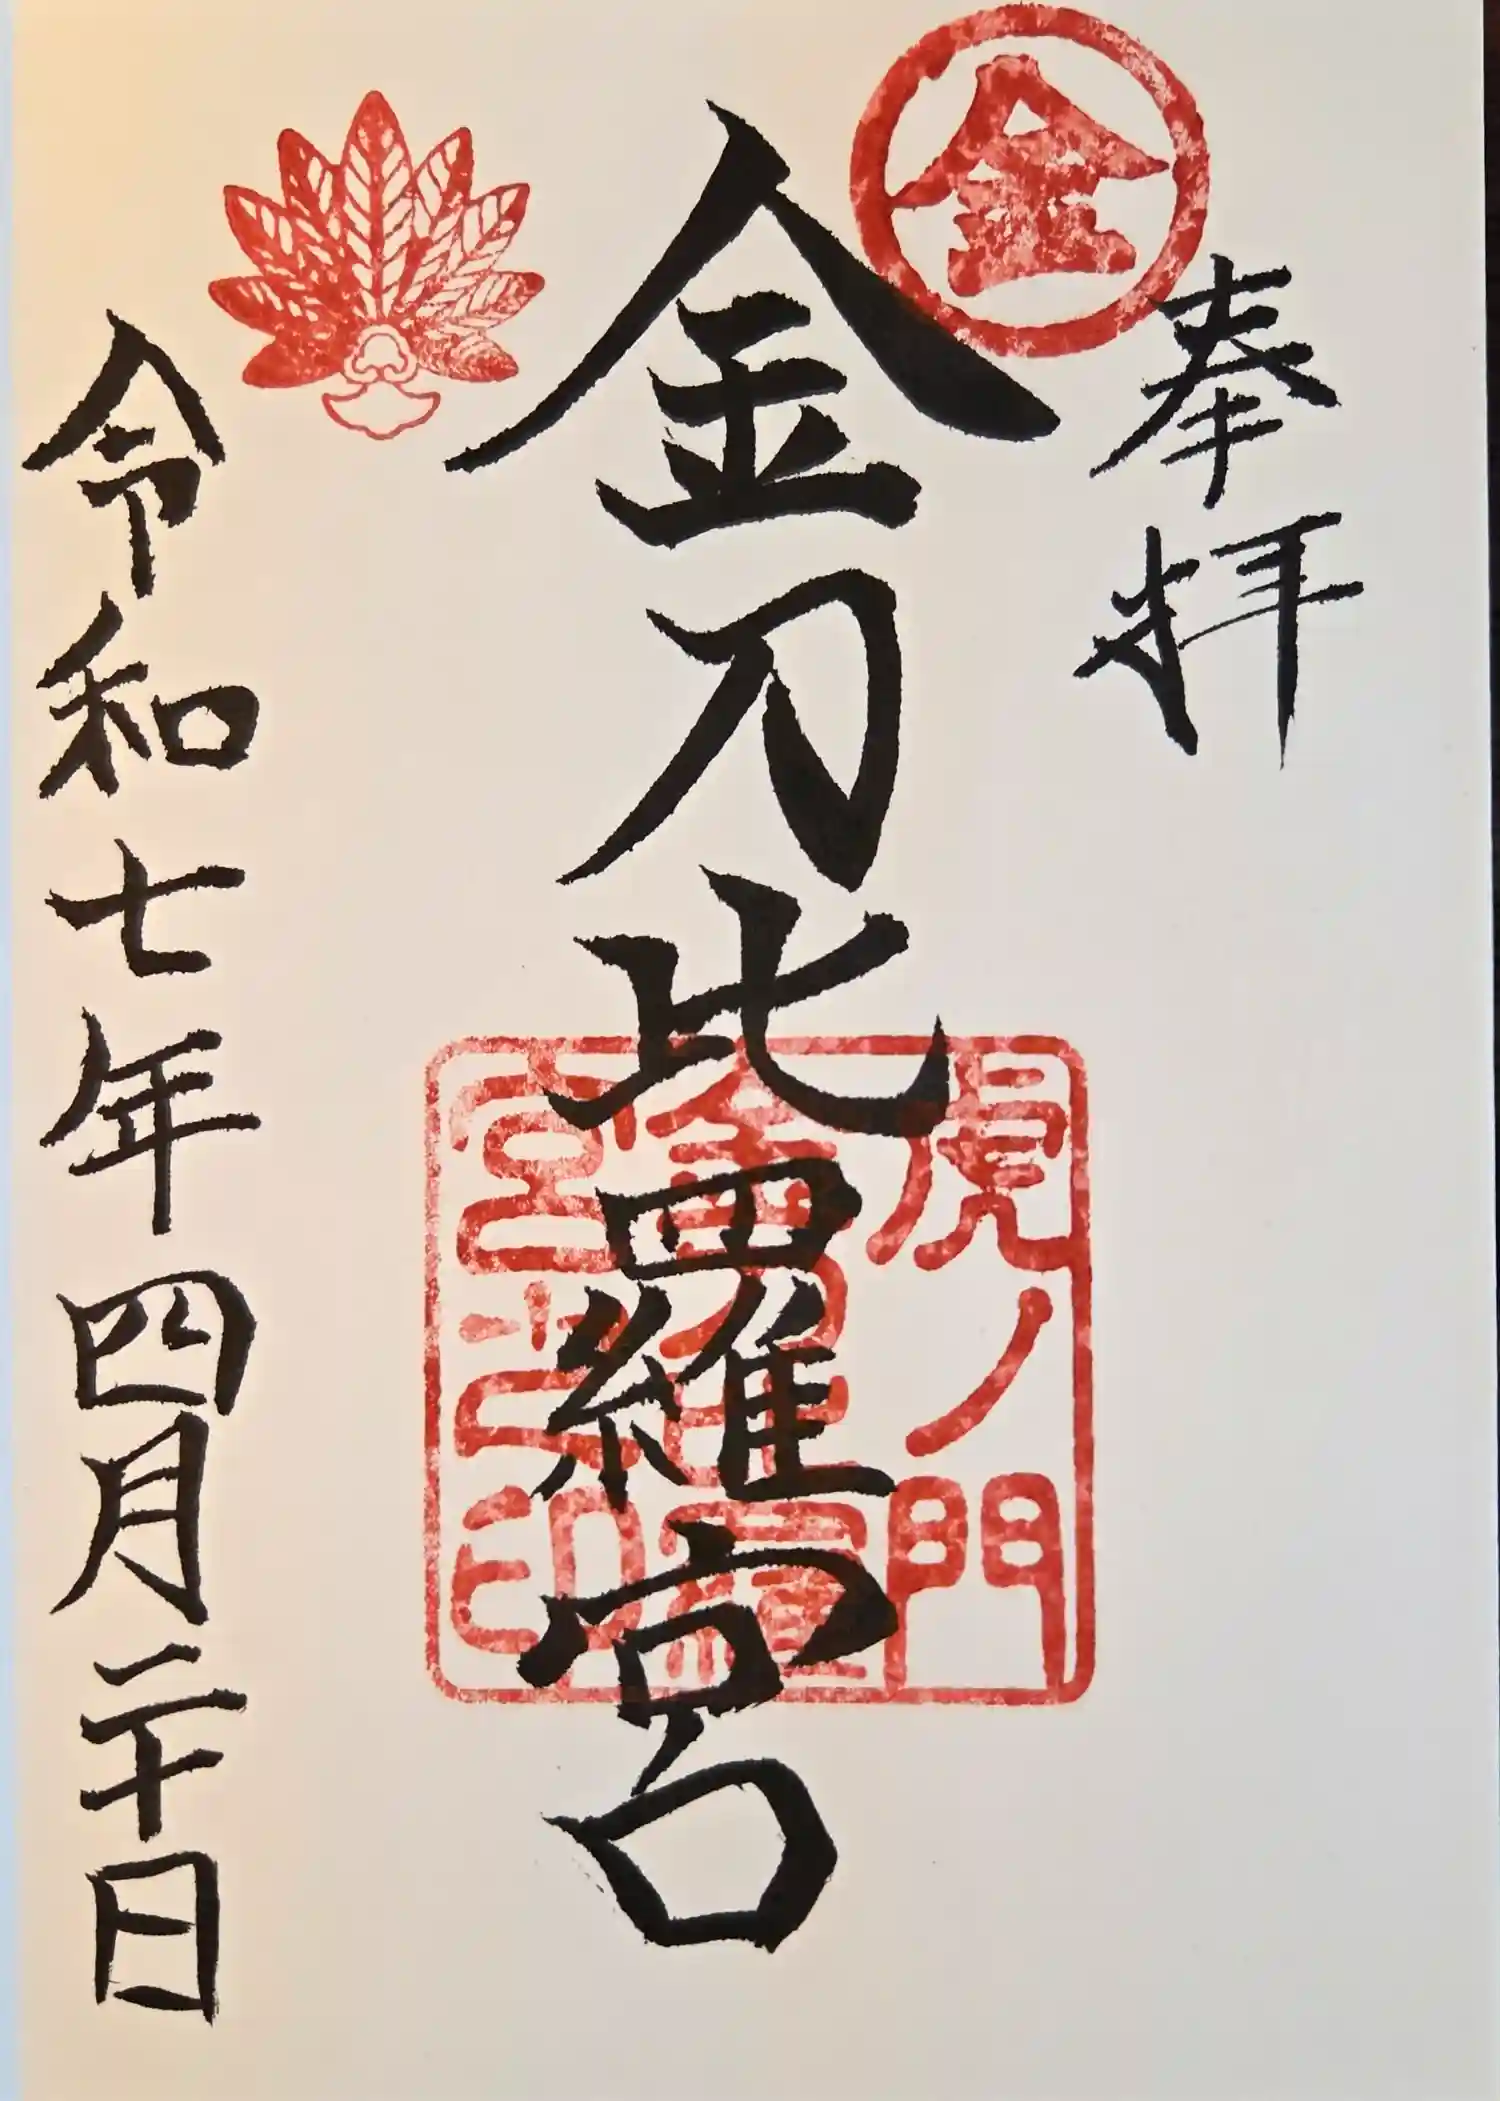 奉拝
金
金刀比羅宮
虎ノ門
金刀比羅宮
宮之印
令和七年四月二十日